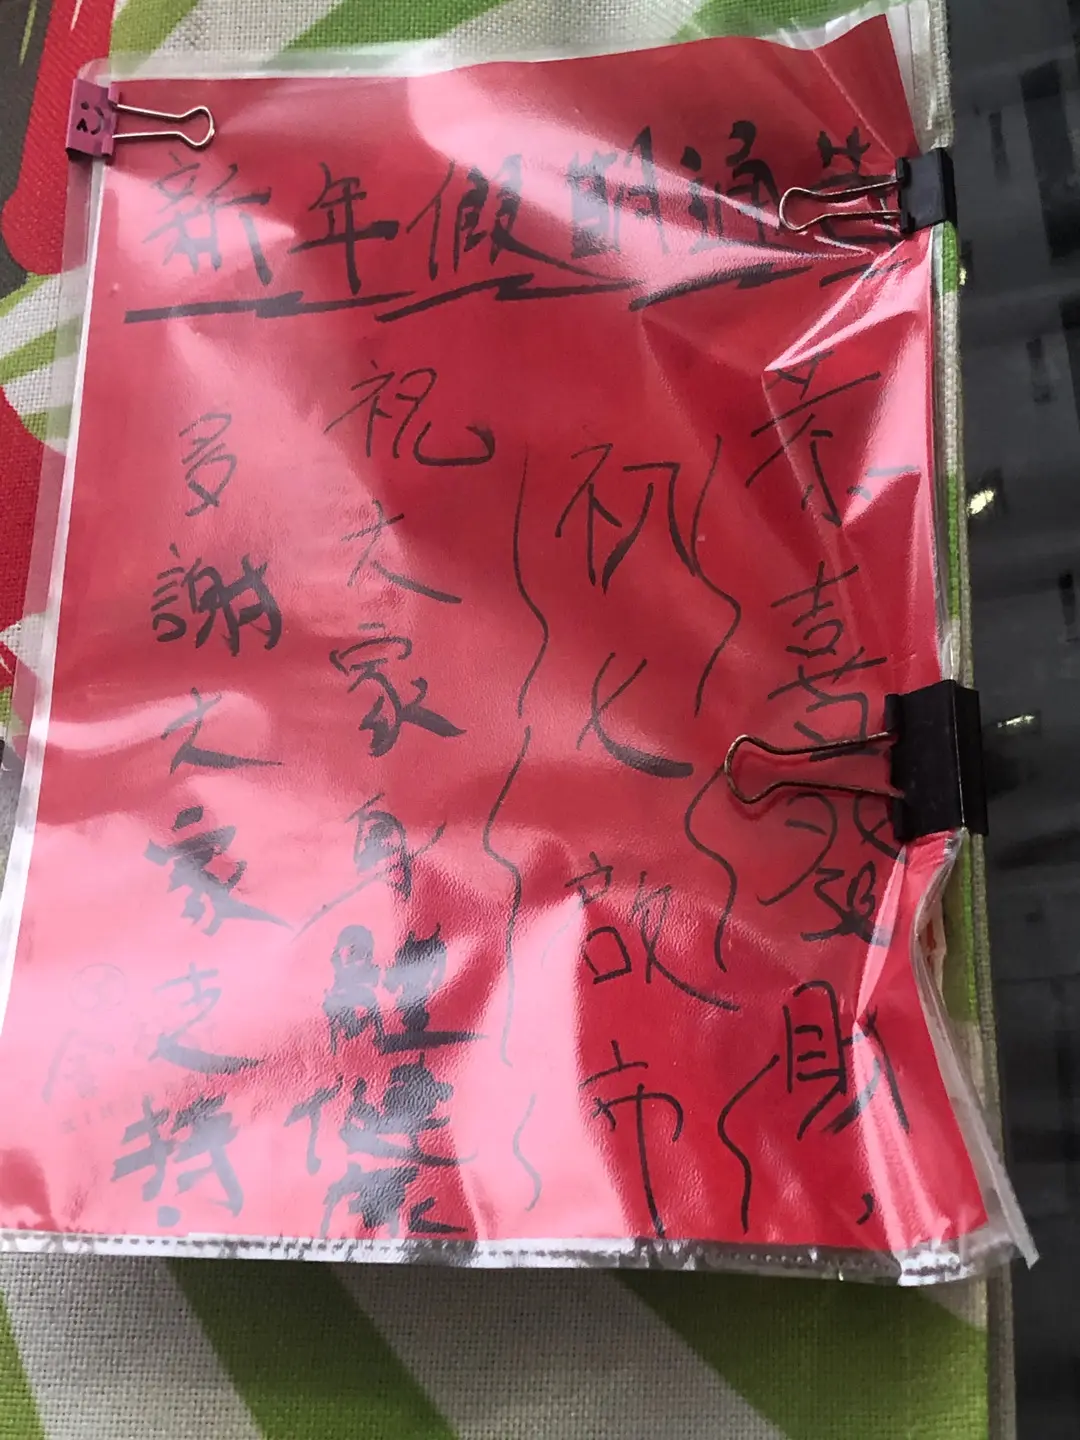 新年假期通告
恭喜發財，
初七啟市
祝大家身體健康
多謝大家支持.